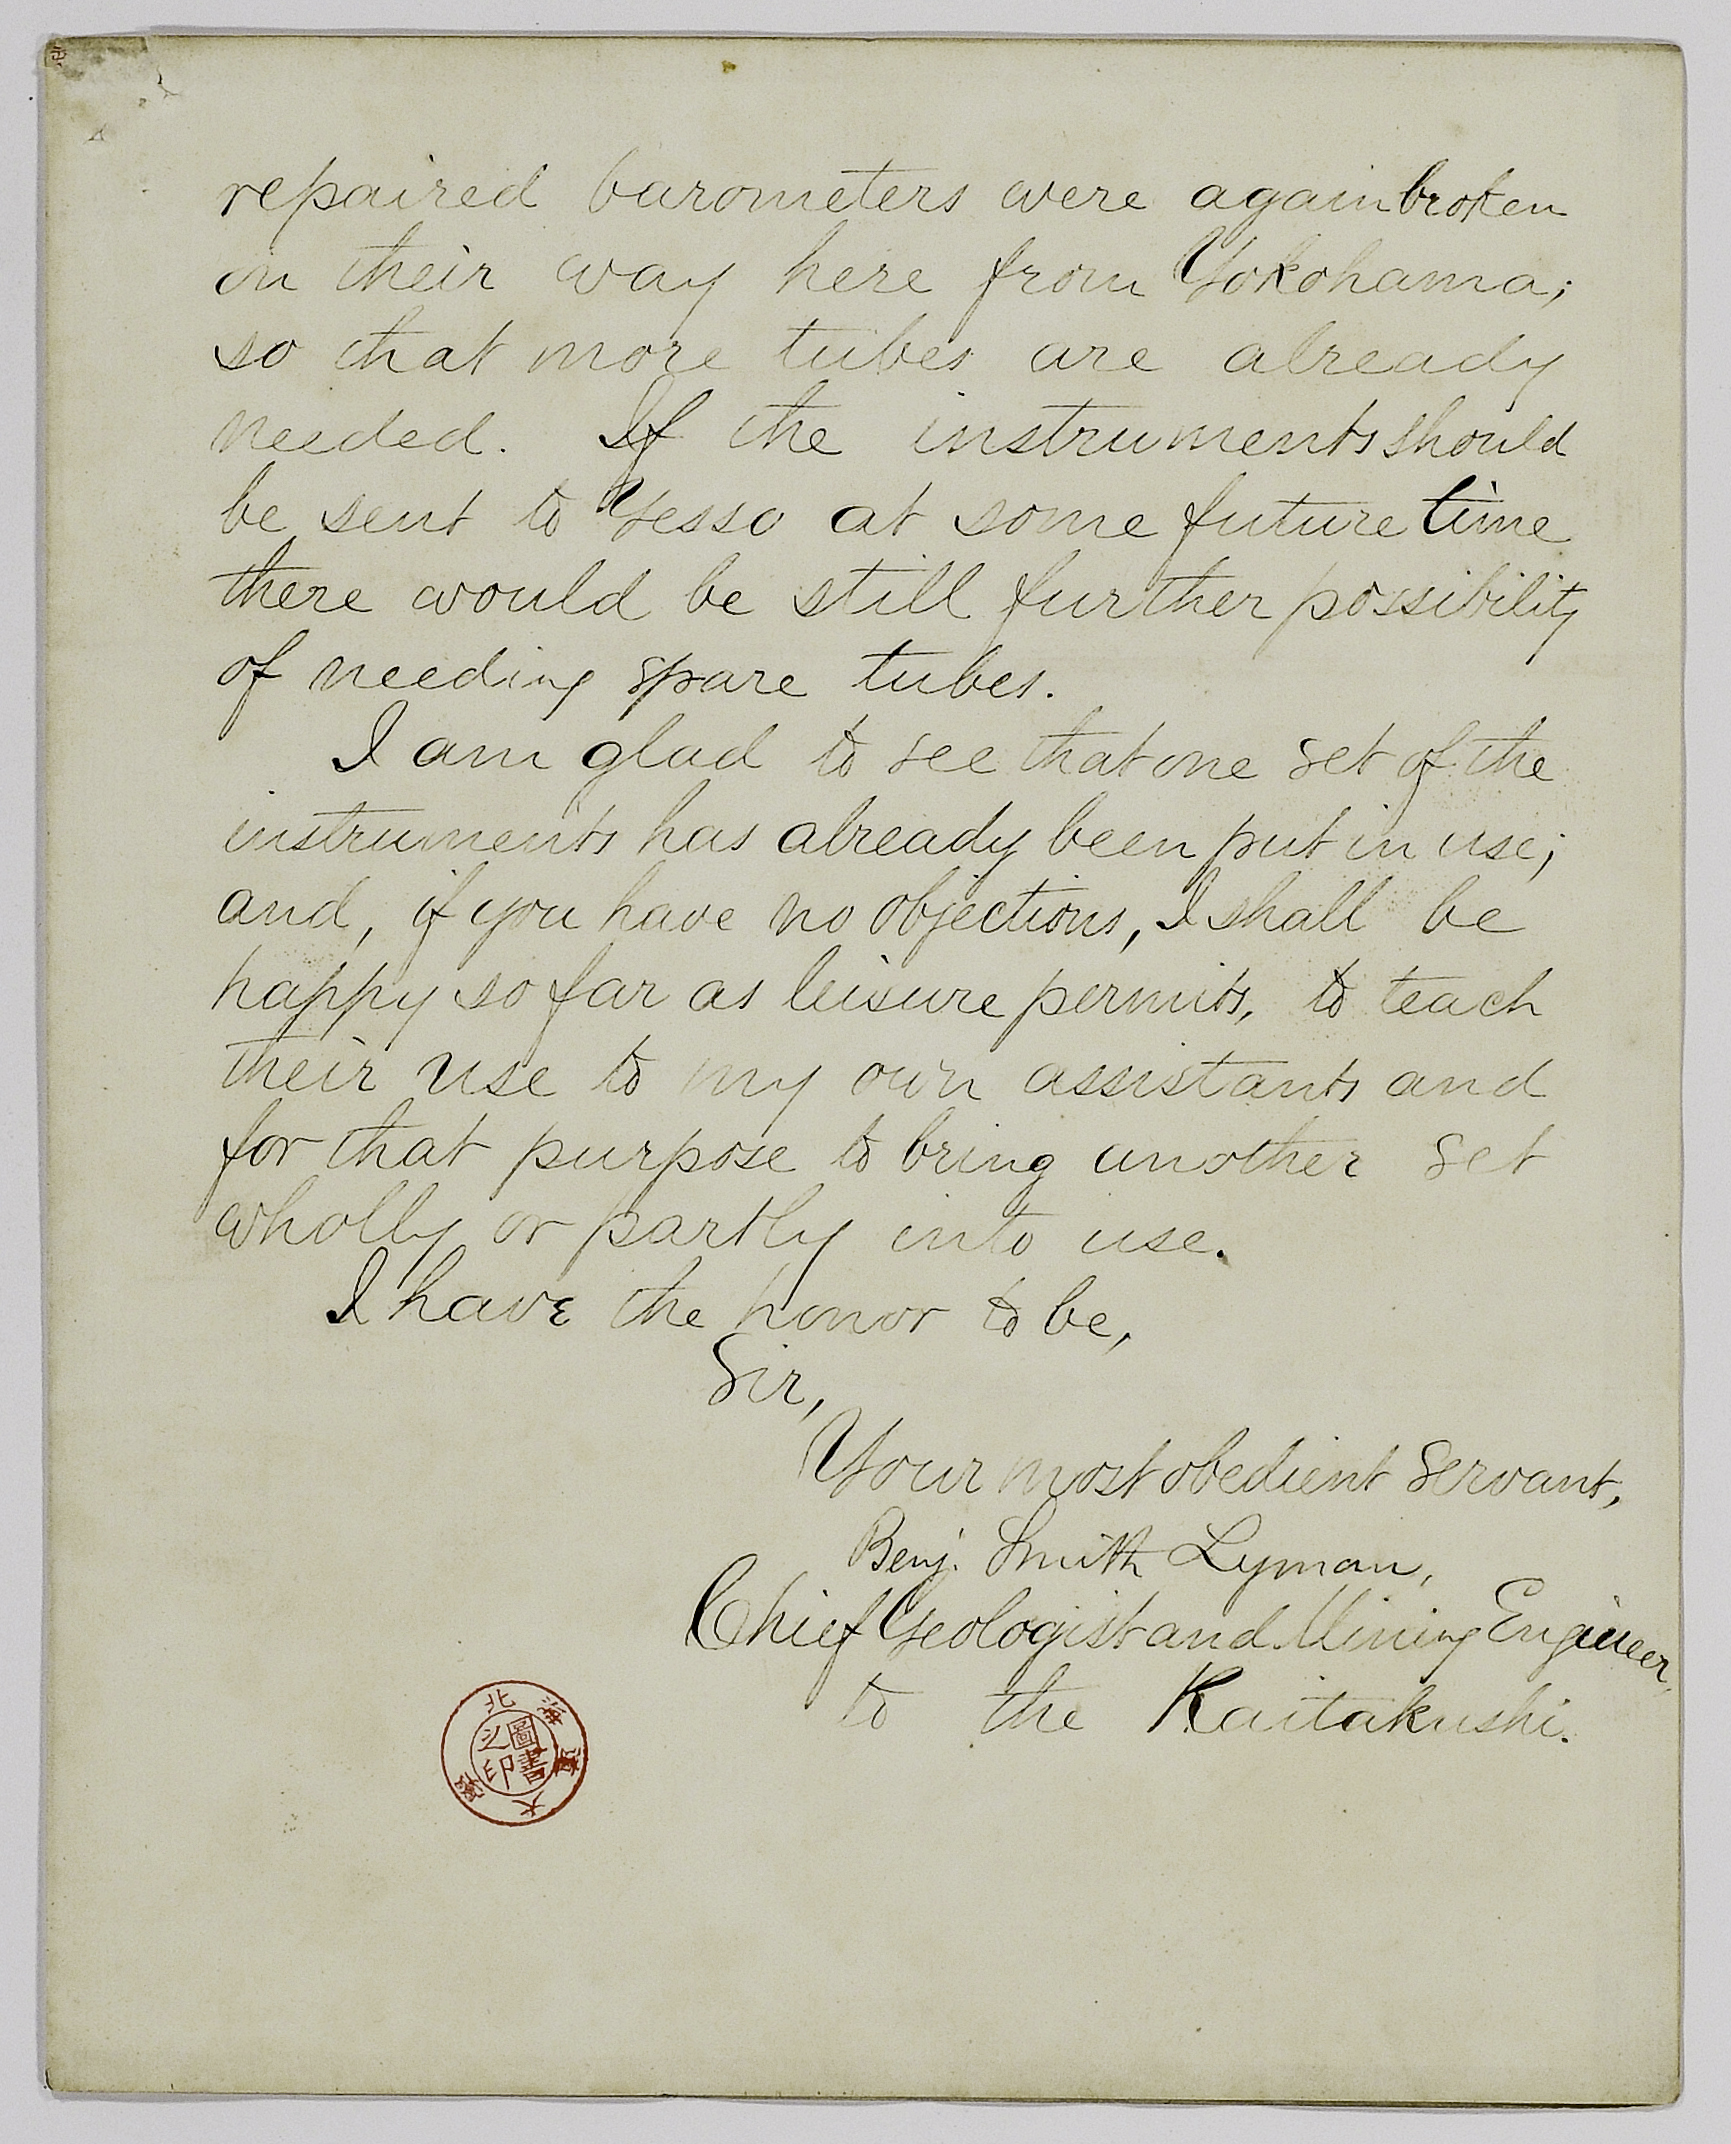 repaired barometers were again broken
on their way here from Yokohama;
so that more tubes are already
needed. If the instruments should
be sent to Yesso at some future time
there would be still further possibility
of needing spare tubes.
I am glad to see that one set of the
instruments has already been put in use;
and, if you have no objections, I shall be
happy so far as leisure permits, to teach
their use to my own assistants and
for that purpose to bring another set
wholly or partly into use.
I have the honor to be,
Sir,
Your most obedient servant,
Benj. Smith Lyman,
Chief Geologist and Mining Engineer,
to the Kaitakushi.
北海道大學
圖書
之印